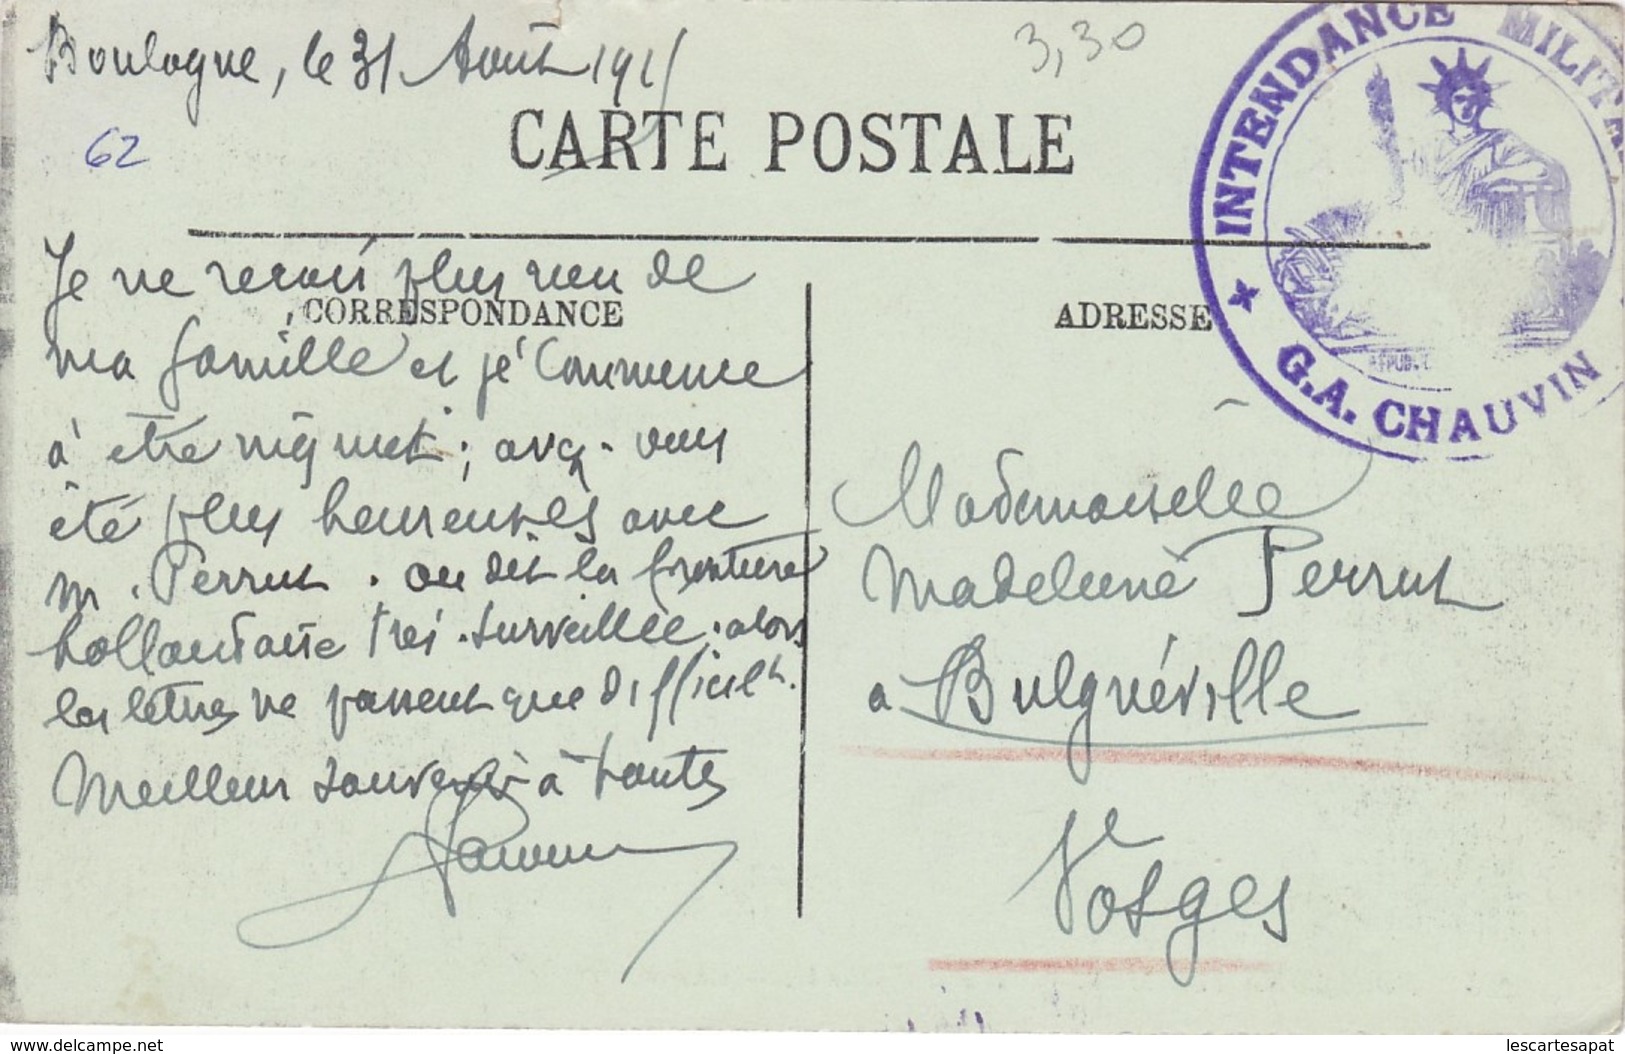 Boulogne, le 31 Août 191
3,30
62
CARTE POSTALE
INTENDANCE MILITA
G.A. CHAUVIN
CORRESPONDANCE
ADRESSE
Je ne reçois plus rien de
ma famille et je commence
à être inquiet ; avez-vous
été plus heureuses avec
M. Perrut. on dit la frontière
hollandaise très surveillée, alors
les lettres ne passent que difficilt.
Meilleur souvenir à toutes
Mademoiselle
Madeleine Perrut
a Bulgnéville
Vosges
delcampe.net
lescartesapat